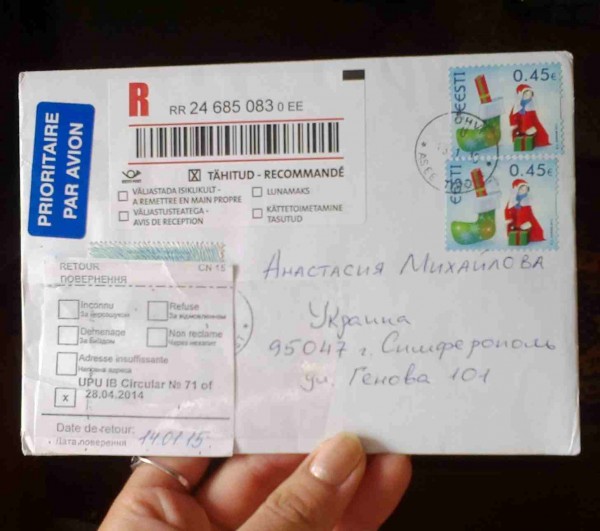 PRIORITAIRE
PAR AVION
R
RR 24 685 083 0 EE
☒ TÄHITUD - RECOMMANDÉ
☐ VÄLJASTADA ISIKLIKULT -
A REMETTRE EN MAIN PROPRE
☐ LUNAMAKS
☐ VÄLJASTUSTEATEGA -
AVIS DE RECEPTION
☐ KÄTTETOIMETAMINE
TASUTUD
EESTI
0.45€
EESTI
0.45€
Анастасия Михайлова
Украина
95047 г. Симферополь
ул. Генова 101
RETOUR
ПОВЕРНЕННЯ
CN 15
Inconnu
Refuse
За відмовленням
Demenage
Non reclame
Adresse insuffissante
Неповна адреса
x
UPU IB Circular № 71 of
28.04.2014
Date de retour:
Дата повернення
14.01.15